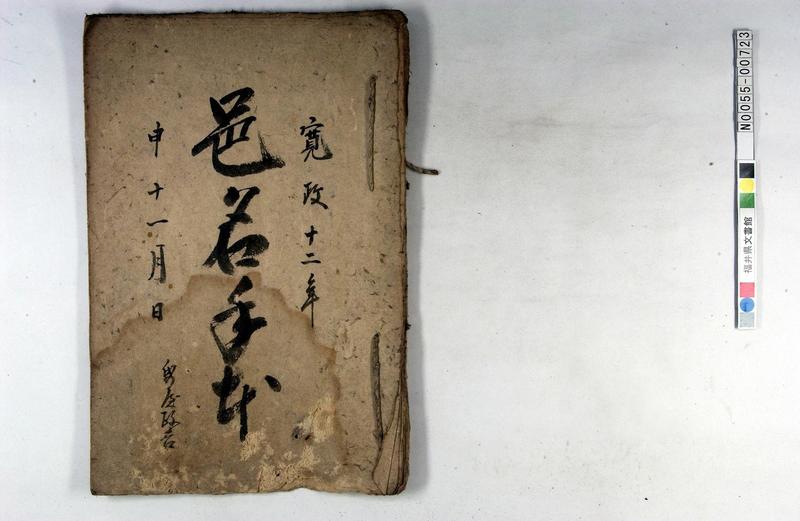 寛政十二年
邑名手本
申十一月日
N0055-00723
福井県文書館